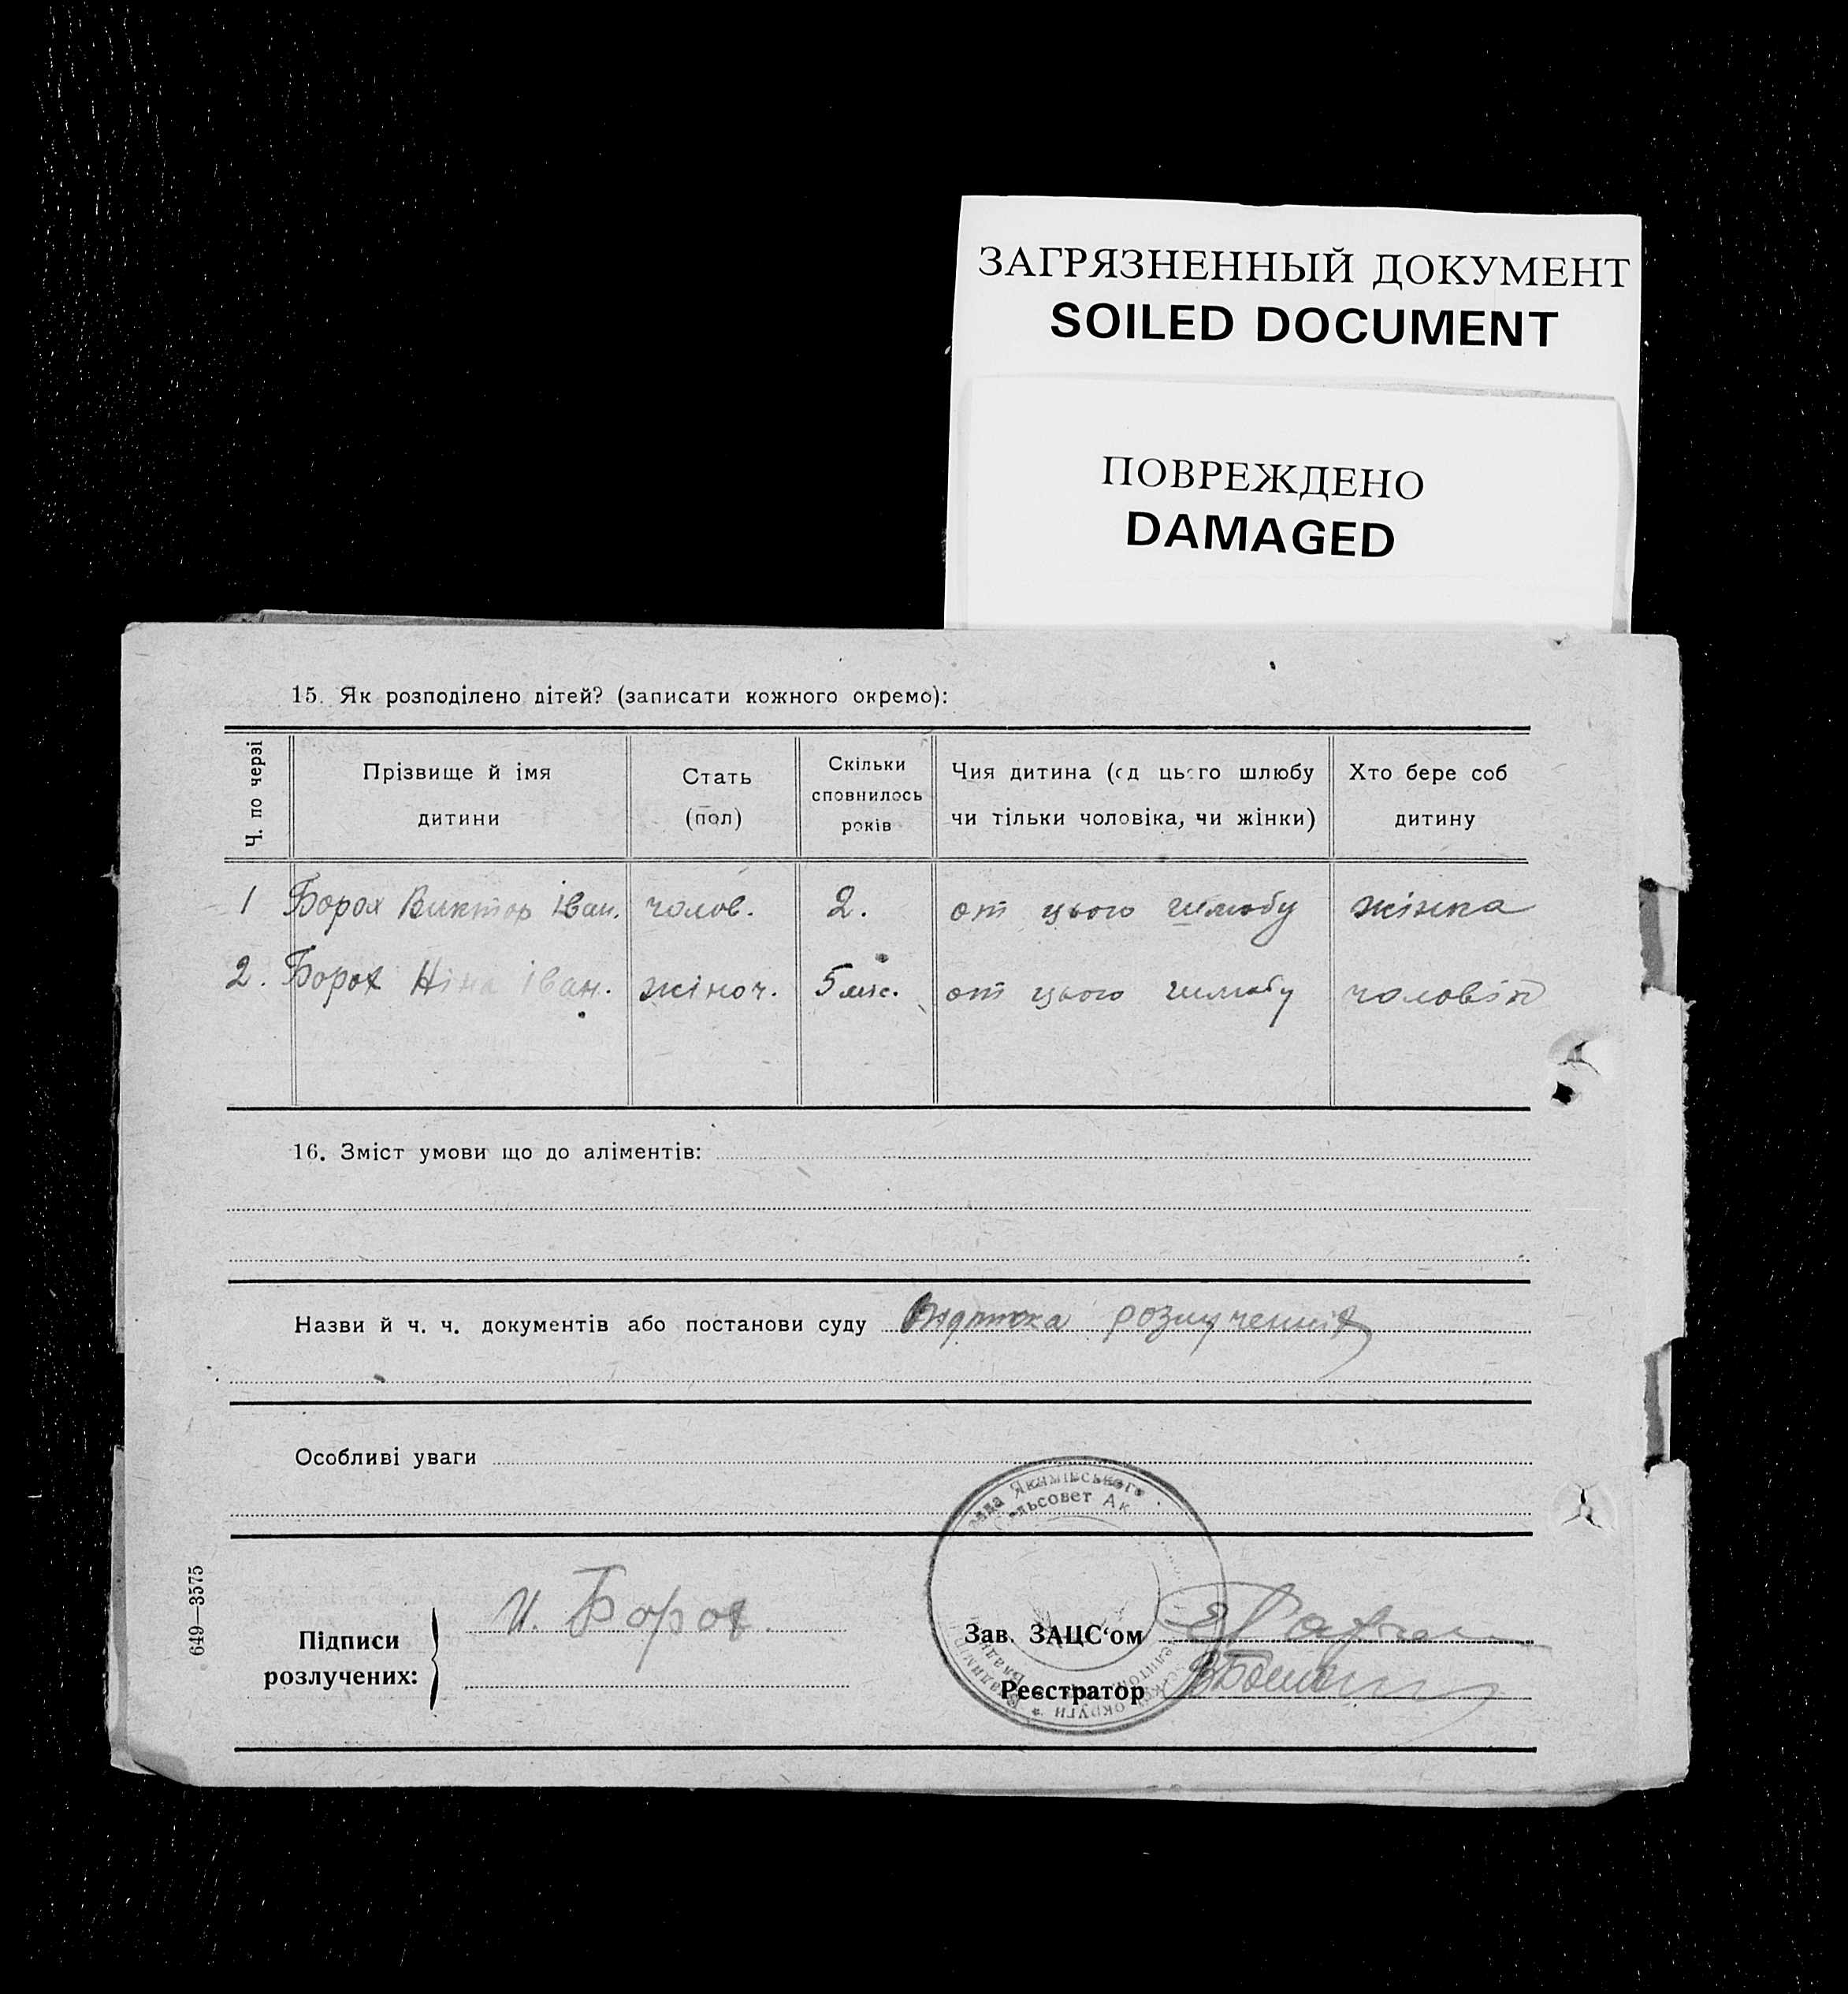 ЗАГРЯЗНЕННЫЙ ДОКУМЕНТ
SOILED DOCUMENT
ПОВРЕЖДЕНО
DAMAGED
15. Як розподілено дітей? (записати кожного окремо):
Ч. по черзі
Прізвище й імя
дитини
Стать
(пол)
Скільки
сповнилось
років
Чия дитина (од цього шлюбу
чи тільки чоловіка, чи жінки)
Хто бере соб
дитину
1 Борох Виктор Іван. чолов. 2. от цього шлюбу жінка
2. Борох Ніна Іван. жіноч. 5 міс. от цього шлюбу чоловік
16. Зміст умови що до аліментів:
Назви й ч. ч. документів або постанови суду розлучення
Особливі уваги
Якимівського
Сельсовет Ак.
округи
649—3575
Підписи
розлучених:
И. Борох.
Зав. ЗАЦС'ом
Реєстратор